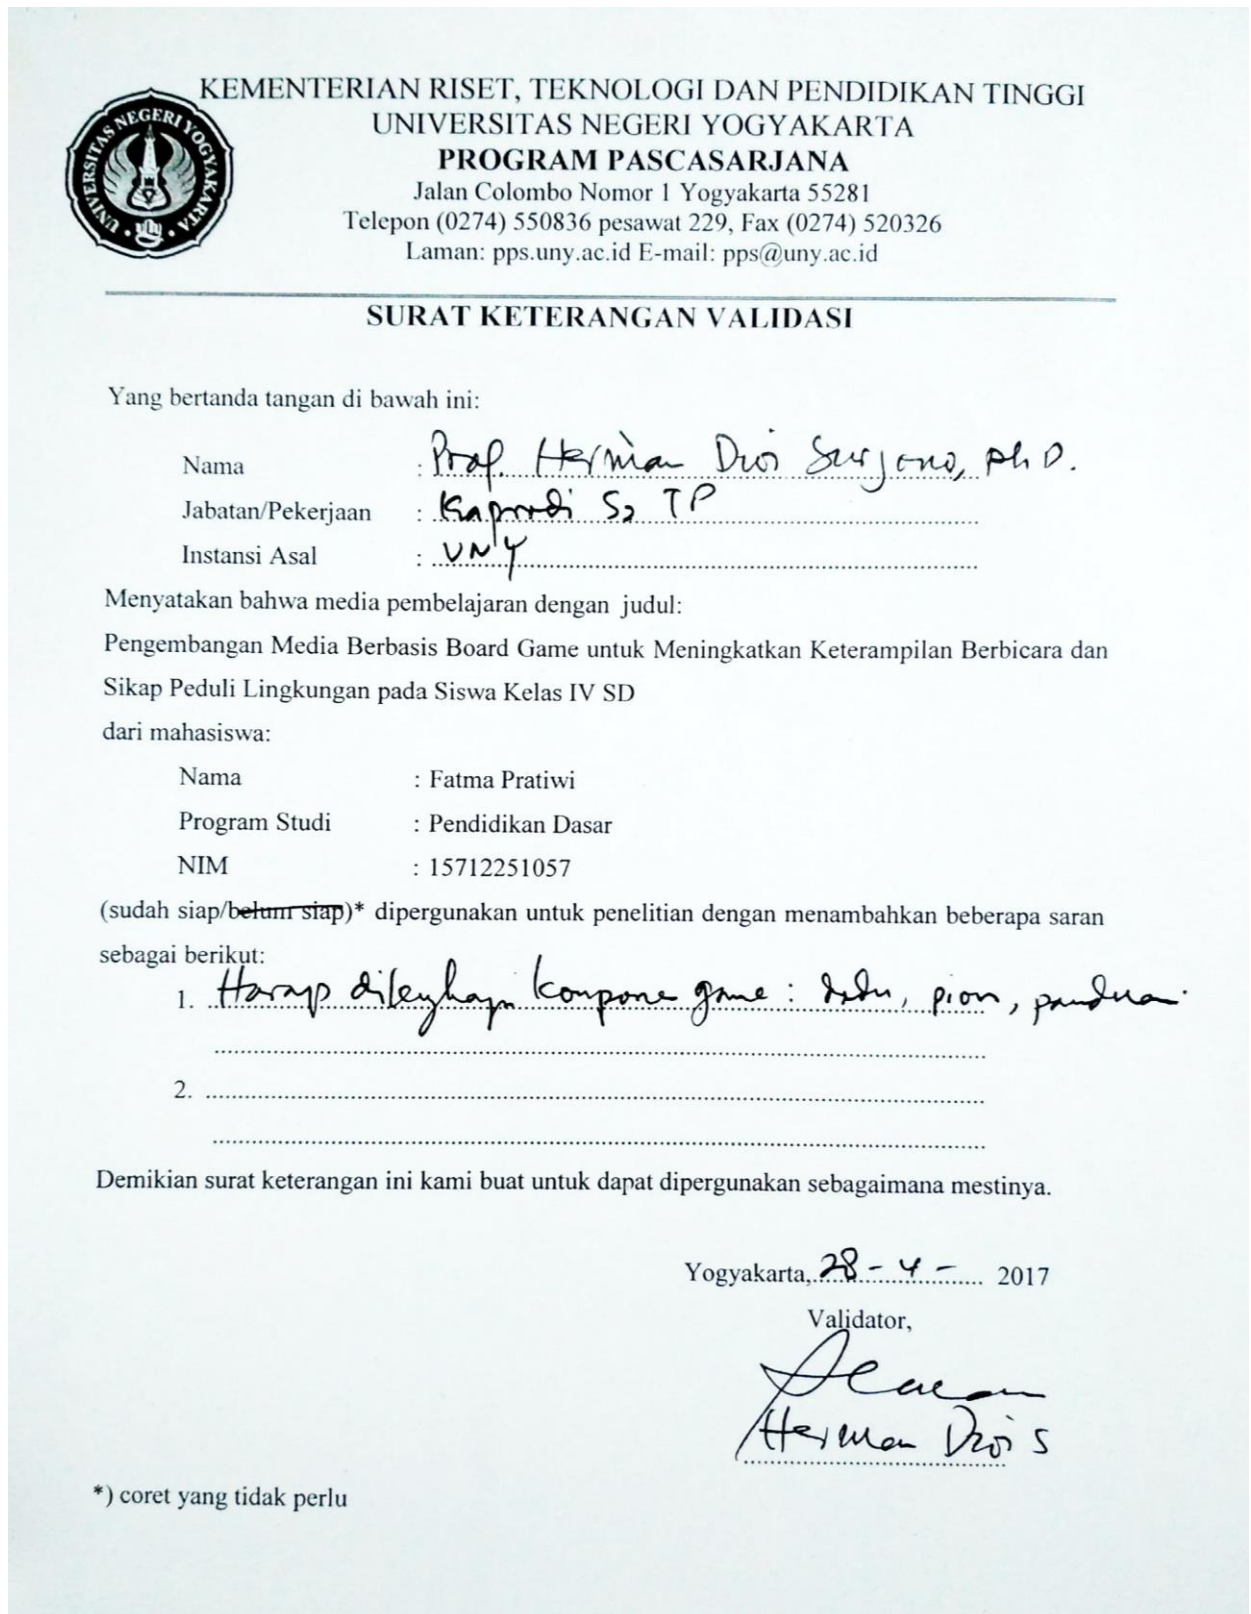 KEMENTERIAN RISET, TEKNOLOGI DAN PENDIDIKAN TINGGI
UNIVERSITAS NEGERI YOGYAKARTA
PROGRAM PASCASARJANA
Jalan Colombo Nomor 1 Yogyakarta 55281
Telepon (0274) 550836 pesawat 229, Fax (0274) 520326
Laman: pps.uny.ac.id E-mail: pps@uny.ac.id
UNIVERSITAS NEGERI YOGYAKARTA
SURAT KETERANGAN VALIDASI
Yang bertanda tangan di bawah ini:
Nama : Prof. Herman Dwi Surjono, Ph.D.
Jabatan/Pekerjaan : Kaprodi S2 TP
Instansi Asal : UNY
Menyatakan bahwa media pembelajaran dengan judul:
Pengembangan Media Berbasis Board Game untuk Meningkatkan Keterampilan Berbicara dan
Sikap Peduli Lingkungan pada Siswa Kelas IV SD
dari mahasiswa:
Nama : Fatma Pratiwi
Program Studi : Pendidikan Dasar
NIM : 15712251057
(sudah siap/belum siap)* dipergunakan untuk penelitian dengan menambahkan beberapa saran
sebagai berikut:
1. Harap game : dadu, pion, panduan.
2.
Demikian surat keterangan ini kami buat untuk dapat dipergunakan sebagaimana mestinya.
Yogyakarta, 28 - 4 - 2017
Validator,
Herman Dwi S
*) coret yang tidak perlu